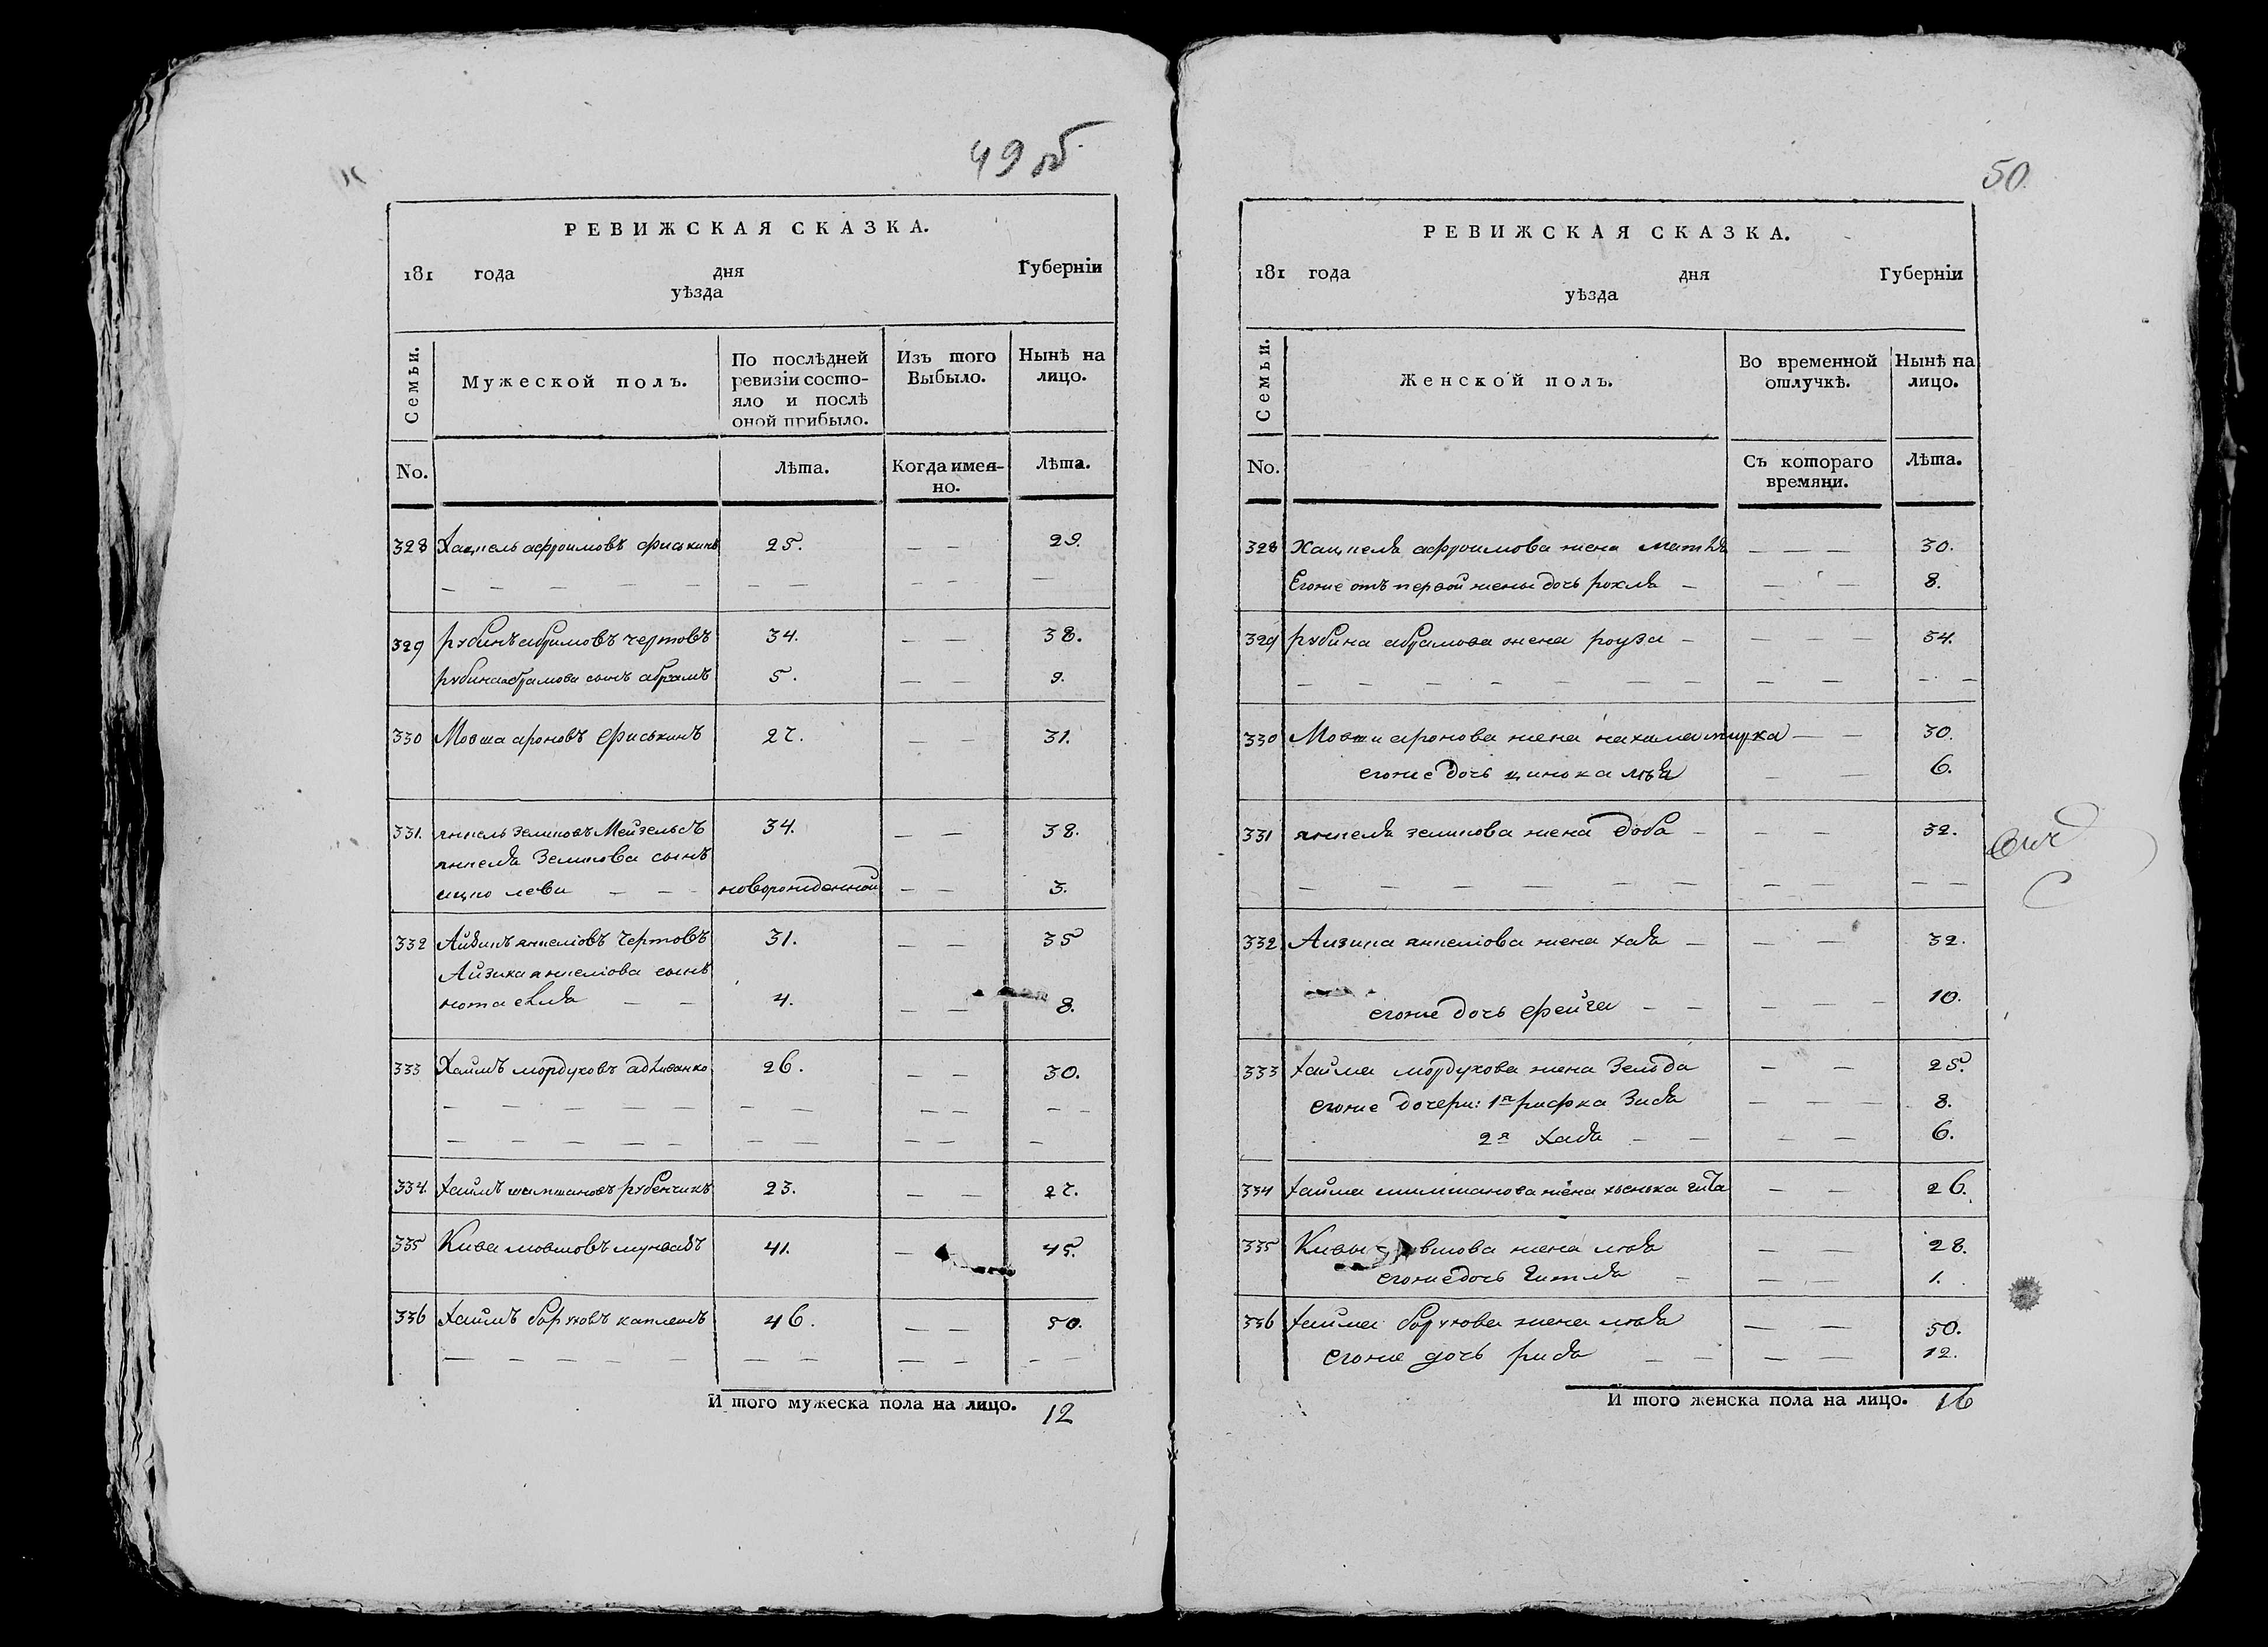 49 об.
РЕВИЖСКАЯ СКАЗКА.
181 года дня Губерніи
уѣзда
Семьи. Мужеской полъ. По послѣдней ревизіи состояло и послѣ оной прибыло. Изъ того Выбыло. Нынѣ на лицо.
No. Лѣта. Когда именно. Лѣта.
328 Хацкель афроимовъ фиськинъ 25. — — 29.
329 рубинъ абрамовъ чертовъ 34. — — 38.
рубина абрамова сынъ абрамъ 5. — — 9.
330 Мовша ароновъ фиськинъ 27. — — 31.
331. янкель зеликовъ Мейзельсъ 34. — — 38.
янкеля Зеликова сынъ
ицко леви — — новорожденной — — 3.
332 Айзикъ янкеліовъ Чертовъ 31. — — 35
Айзика янкеліова сынъ
нота — — 4. — — 8.
333 Хаимъ мордуховъ 26. — — 30.
334. хаимъ шимшановъ рубенчикъ 23. — — 27.
335 Кива мовшовъ 41. — 45.
336 Хаимъ боруховъ капланъ 46. — — 50.
И того мужеска пола на лицо. 12
50.
РЕВИЖСКАЯ СКАЗКА.
181 года дня Губерніи
уѣзда
Семьи. Женской полъ. Во временной отлучкѣ. Нынѣ на лицо.
No. Съ котораго времяни. Лѣта.
328 Хацкеля афроимова жена — — — 30.
Егоже отъ первой жены дочь рохля — — — 8.
329 рубина абрамова жена роуза — — — — 34.
330 Мовши аронова жена нахама мирка — — 30.
егоже дочь — — 6.
331 янкеля зеликова жена доба — — — 32.
332 Аизика янкеліова жена хая — — — 32.
егоже дочь фейга — — — — — 10.
333 хайма мордухова жена Зелда — — 25.
егоже дочери: 1я рифка Зися — — — 8.
2я хая — — — — 6.
334 хайма шимшанова жена — — 26.
335 Кивы мовшова жена — — 28.
егоже дочь Гитля — — — 1.
336 хайма борухова жена — — 50.
егоже дочь — — — — 12.
И того женска пола на лицо. 16